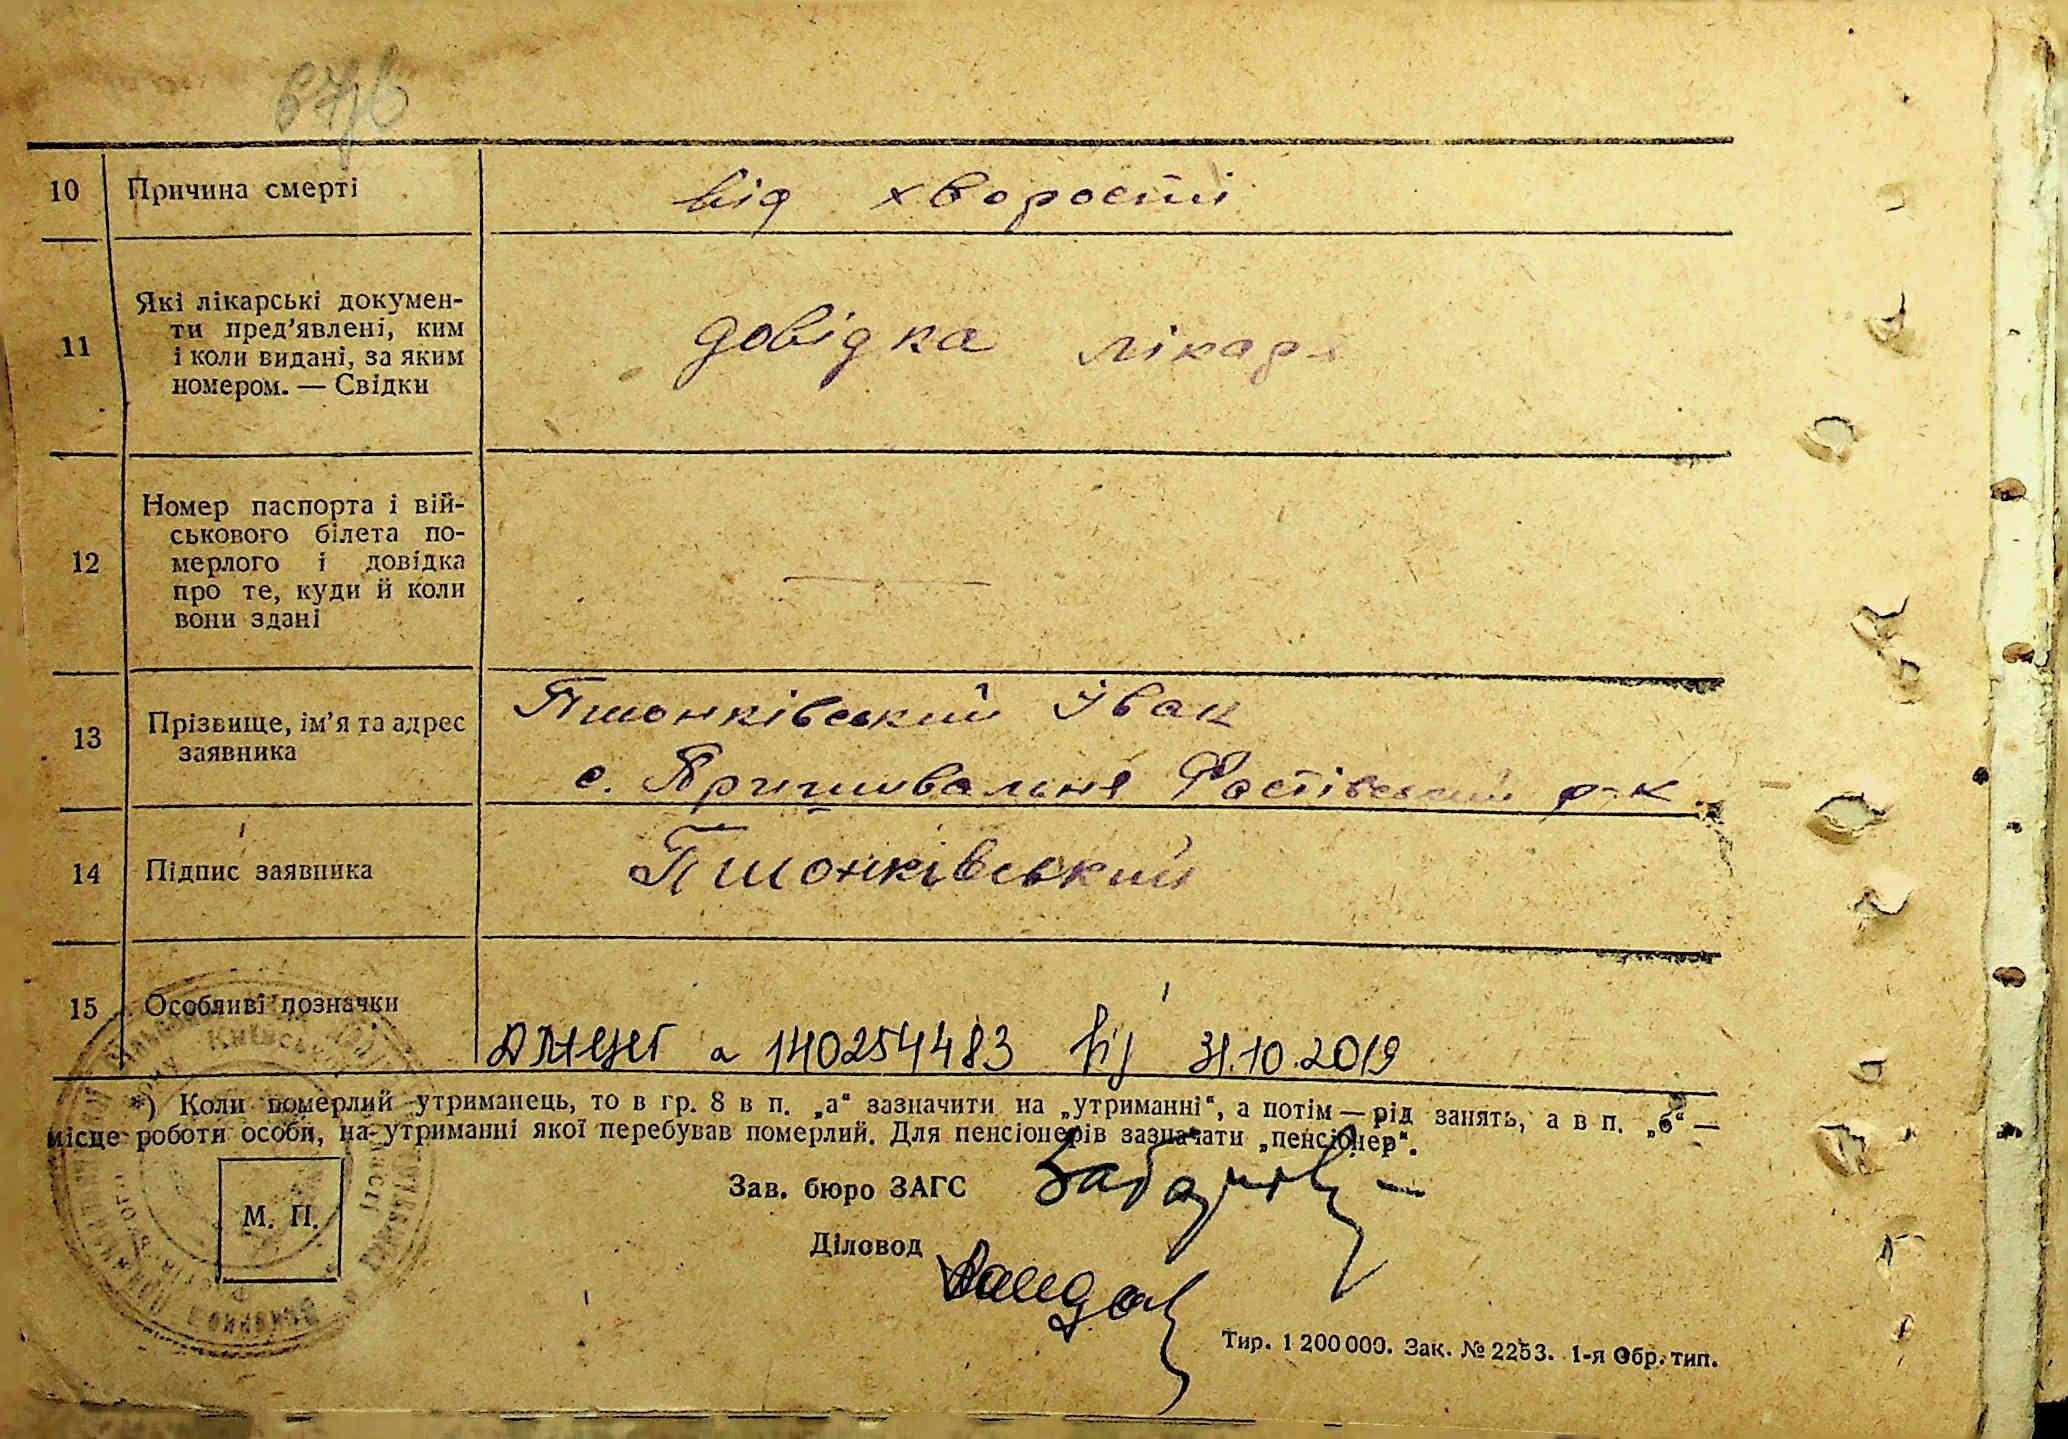 10 Причина смерті від хворости
11 Які лікарські докумен-
ти пред'явлені, ким
і коли видані, за яким
номером. — Свідки
довідка лікаря
12 Номер паспорта і вій-
ськового білета по-
мерлого і довідка
про те, куди й коли
вони здані
—
13 Прізвище, ім'я та адрес
заявника
Пшонківський Іван
с. Пришивальня Фастівський р-к
14 Підпис заявника Пшонківський
15 Особливі позначки
а 140254483 від 31.10.2019
*) Коли померлий утриманець, то в гр. 8 в п. „а“ зазначити на „утриманні“, а потім — рід занять, а в п. „б“ —
місце роботи особи, на утриманні якої перебував померлий. Для пенсіонерів зазначати „пенсіонер“.
Зав. бюро ЗАГС
М. П.
Діловод
Тир. 1 200 000. Зак. № 2253. 1-я Обр. тип.